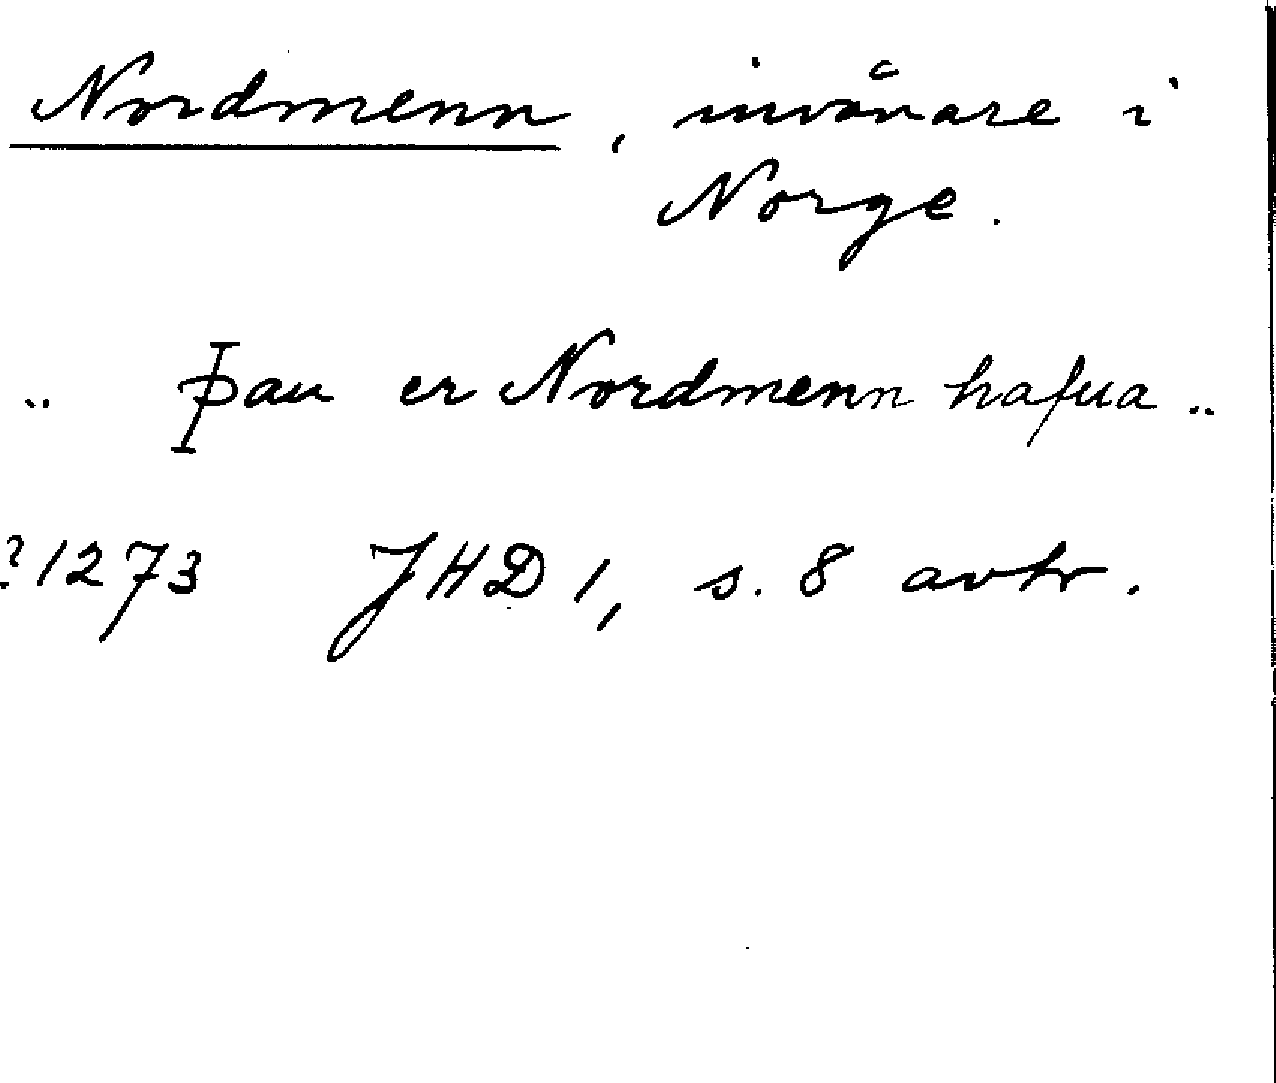 Nordmenn, invånare i
Norge.
.. Þau er Nordmenn hafua ..
?1273 JHD 1, s. 8 avtr.